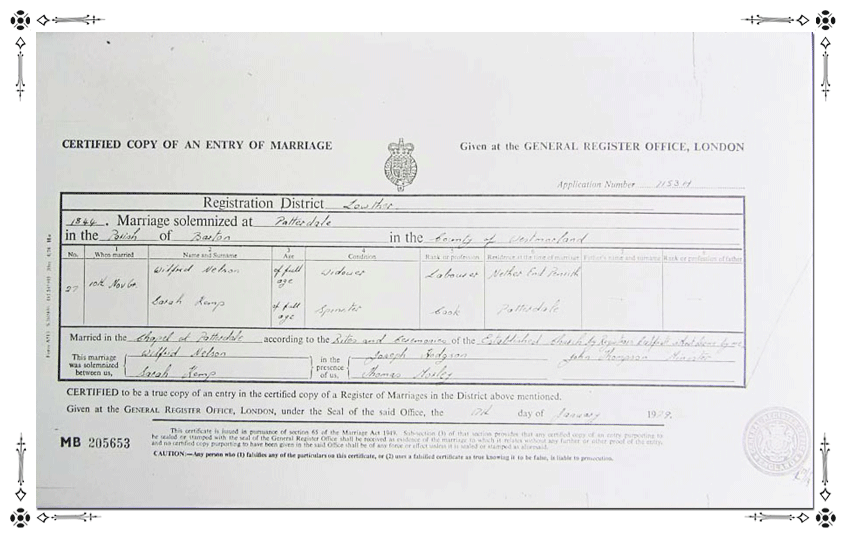 CERTIFIED COPY OF AN ENTRY OF MARRIAGE
Given at the GENERAL REGISTER OFFICE, LONDON
Application Number 1153H
Registration District Lowther
1844. Marriage solemnized at Patterdale
in the Parish of Barton in the County of Westmorland
No. When married Name and Surname Age Condition Rank or profession Residence at the time of marriage Father's name and surname Rank or profession of father
27 10th Wilfred Nelson of full age Widower Labourer Nether End Penrith
Sarah Kemp of full age Spinster Cook Patterdale
Married in the Chapel at Patterdale according to the Rites and Ceremonies of the Established Church by
This marriage was solemnized between us, Wilfred Nelson in the presence of us, Joseph Hodgson John Thompson Minister
Sarah Kemp Thomas
CERTIFIED to be a true copy of an entry in the certified copy of a Register of Marriages in the District above mentioned.
Given at the GENERAL REGISTER OFFICE, LONDON, under the Seal of the said Office, the day of January 1979.
MB 205653
This certificate is issued in pursuance of section 65 of the Marriage Act 1949. Sub-section (3) of that section provides that any certified copy of an entry purporting to
be sealed or stamped with the seal of the General Register Office shall be received as evidence of the marriage to which it relates without any further or other proof of the entry,
and no certified copy purporting to have been given in the said Office shall be of any force or effect unless it is sealed or stamped as aforesaid.
CAUTION:—Any person who (1) falsifies any of the particulars on this certificate, or (2) uses a falsified certificate as true knowing it to be false, is liable to prosecution.